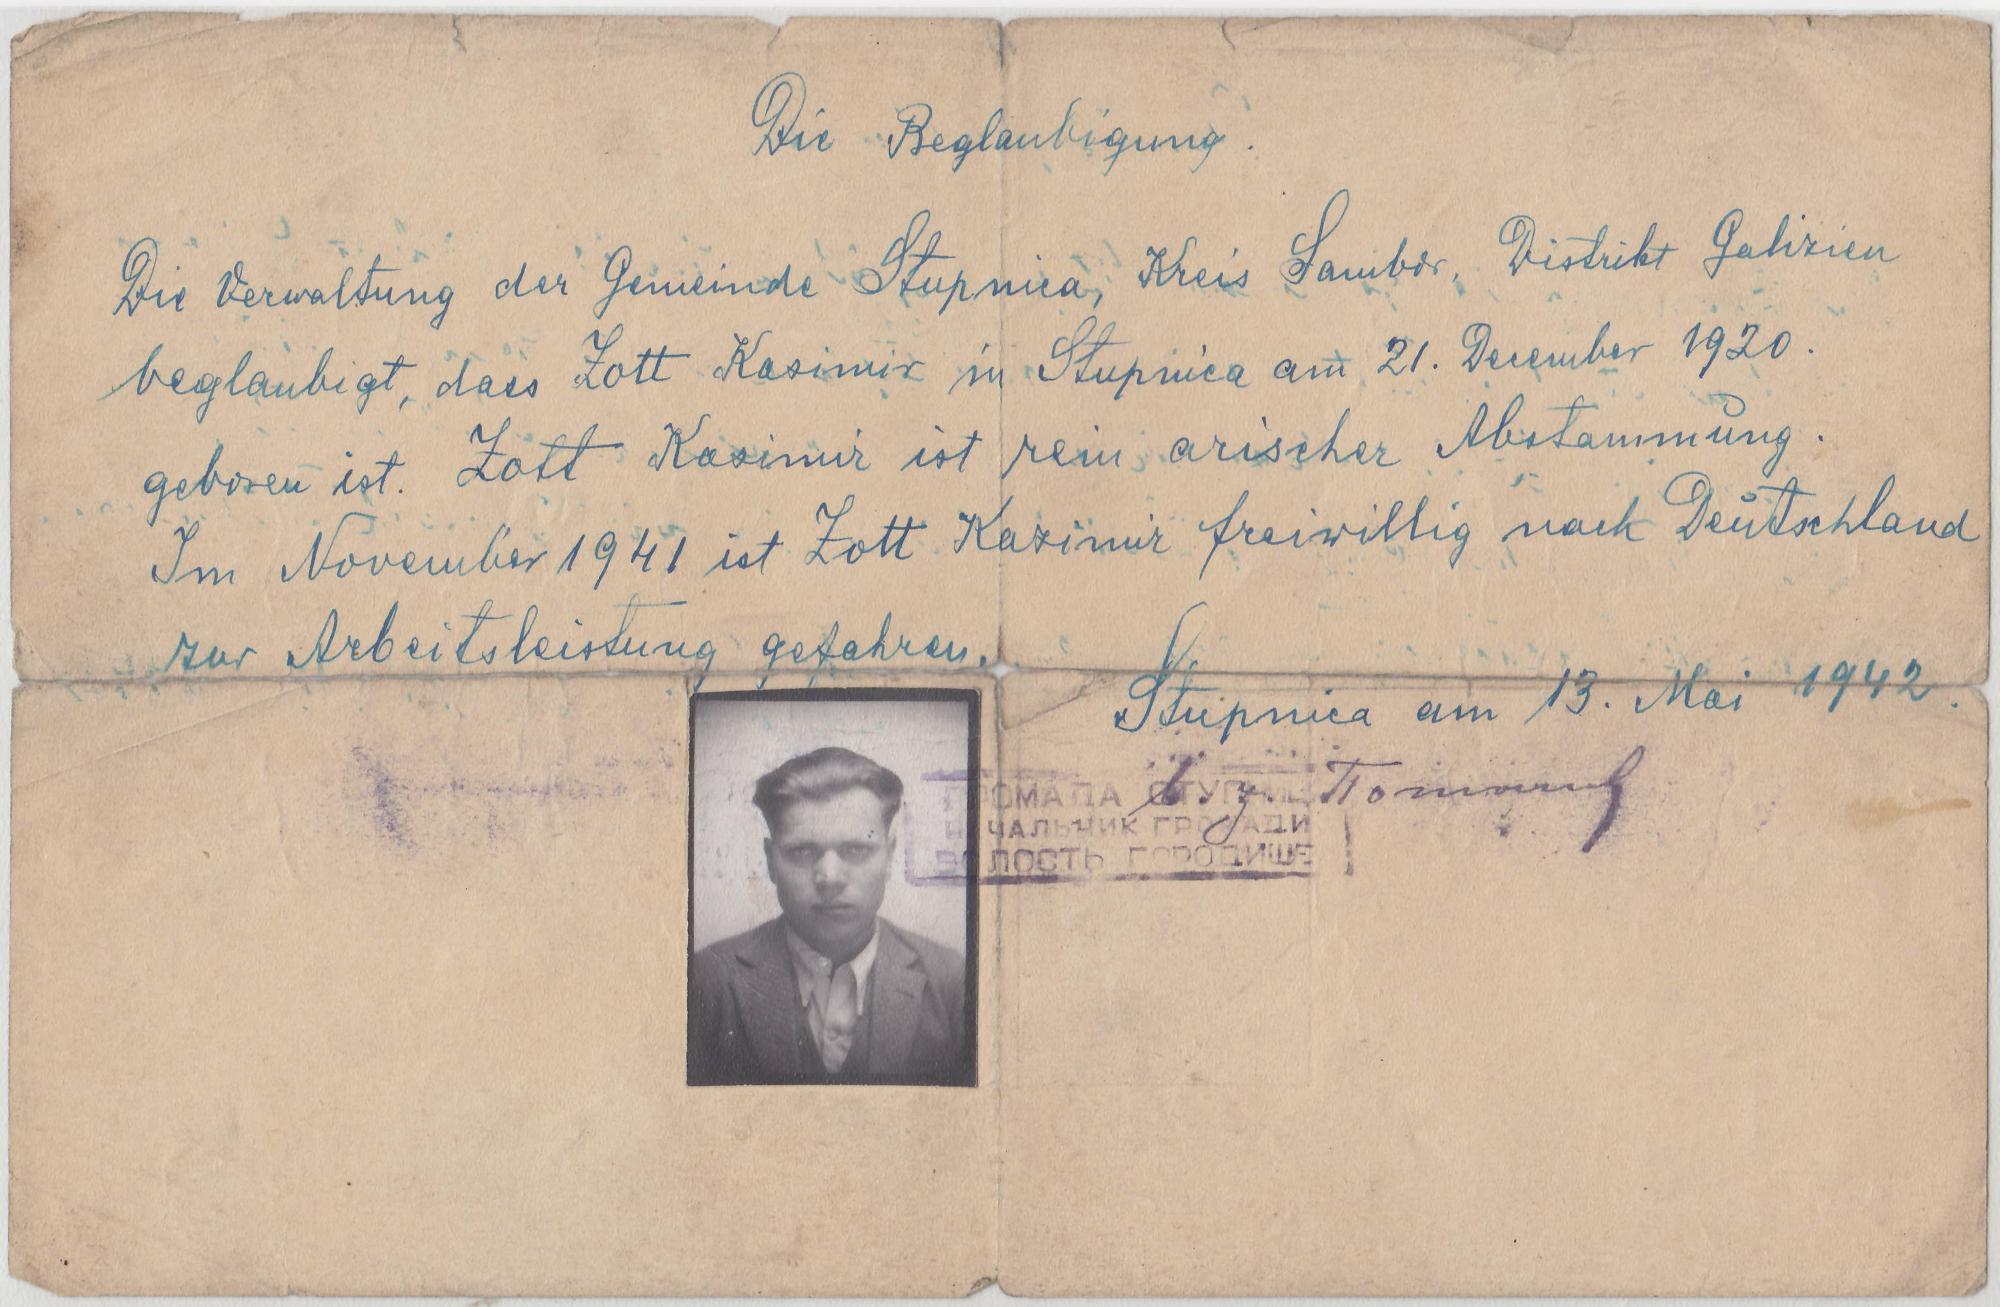 Die Beglaubigung.
Die Verwaltung der Gemeinde Stupnica, Kreis Sambor, Distrikt Galizien
beglaubigt, dass Zott Kasimir in Stupnica am 21. December 1920.
geboren ist. Zott Kasimir ist rein arischer Abstammung.
Im November 1941 ist Zott Kazimir freiwillig nach Deutschland
zur Arbeitsleistung gefahren.
Stupnica am 13. Mai 1942.
ГРОМАДА СТУПНИЦЯ
НАЧАЛЬНИК ГРОМАДИ
ВОЛОСТЬ ГОРОДИЩЕ